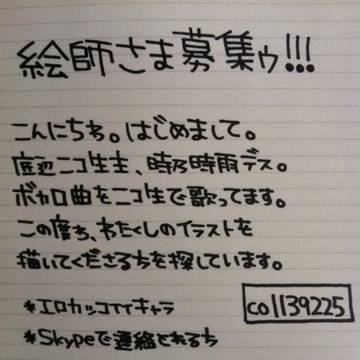 絵師さま募集ゥ!!!
こんにちわ。はじめまして。
底辺ニコ生主、時乃時雨デス。
ボカロ曲をニコ生で歌ってます。
この度ち、わたくしのイラストを
描いてくださるちを探しています。
*エロカッコイイキャラ
co1139225
*Skypeで連絡とれるち